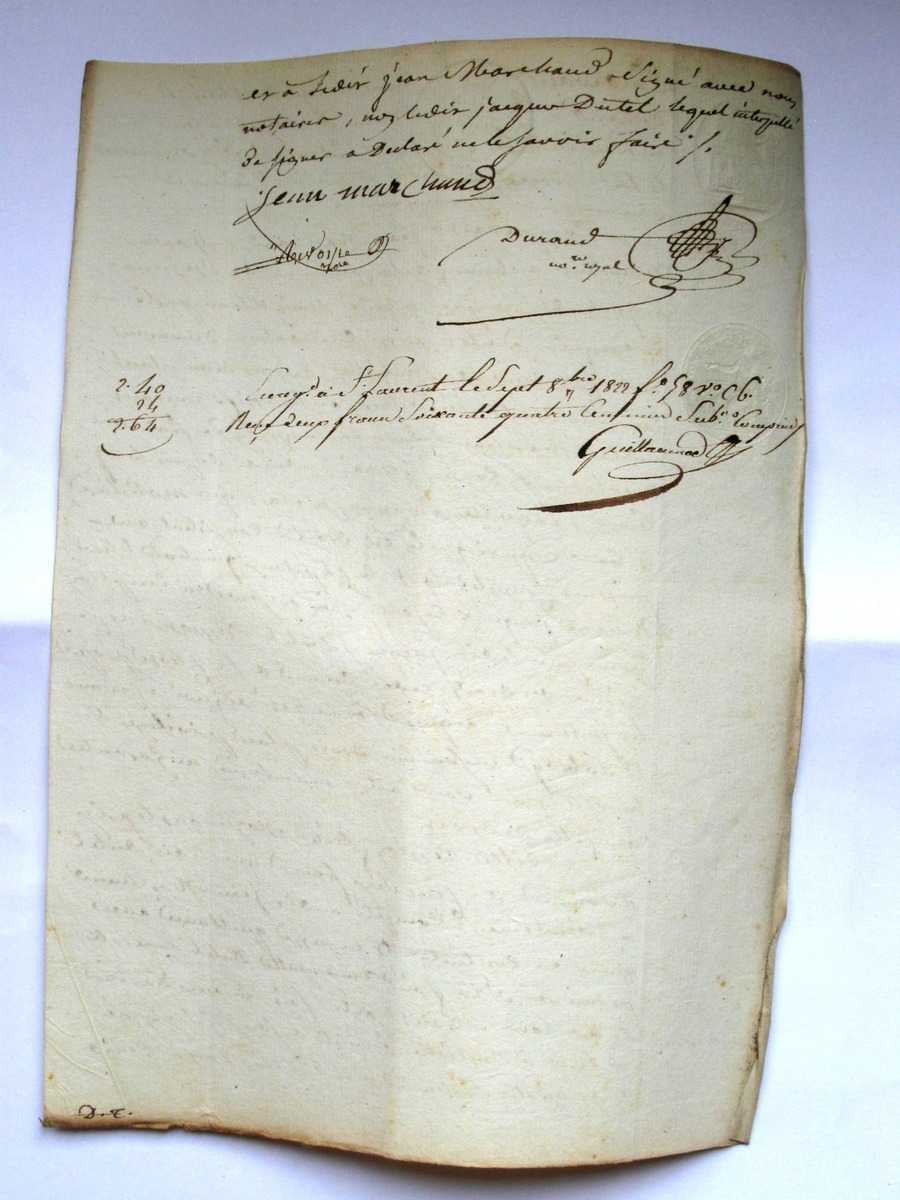 et a ledit jean Marchand signé avec nous
notaires, non ledit jacques Dutel lequel interpellé
de signer a Déclaré ne le savoir faire ./.
jean marchand
Durand
no.re royal
2. 40
24
2. 64
Enregé à St. Laurent le Sept 8bre 1822 fo. 58 Vo. C6.
Reçu deux francs Soixante quatre Centimes Subon Compris
Guillaumod
D.t.